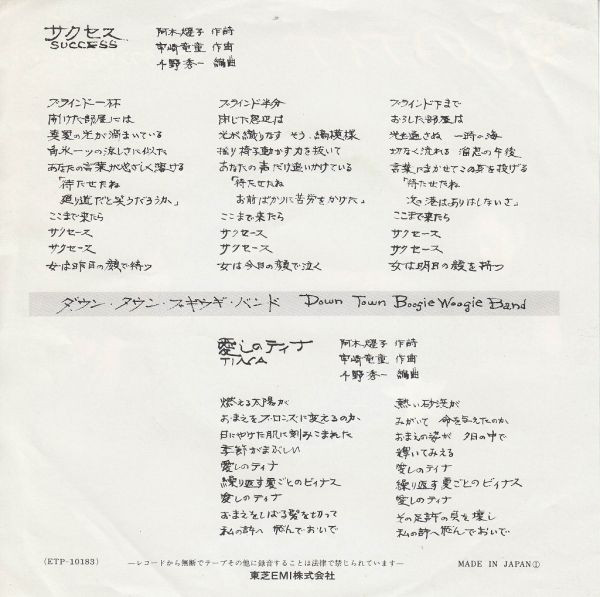 サクセス
SUCCESS
阿木燿子 作詩
宇崎竜童 作曲
千野秀一 編曲
ブラインド一杯
開けた部屋には
真夏の光が満まいている
香水一ツの涼しさに似た
あなたの言葉がやさしく溶ける
「待たせたね
廻り道だと笑うだろうか」
ここまで来たら
サクセース
サクセース
女は昨日の顔で待つ
ブラインド半分
閉じた窓辺は
光が織りなす そう 縞模様
揺り椅子動かす力を抜いて
あなたの声だけ追いかけている
「待たせたね
お前ばかりに苦労をかけた」
ここまで来たら
サクセース
サクセース
女は今日の顔で泣く
ブラインド下まで
おろした部屋は
光も通さぬ 一時の海
切なく流れる 溜息の午後
言葉にまかせてこの身を投げる
「待たせたね
次の港はありはしないさ」
ここまで来たら
サクセース
サクセース
女は明日の顔を持つ
ダウン・タウン・ブギウギ・バンド Down Town Boogie Woogie Band
愛しのティナ
TINA
阿木燿子 作詩
宇崎竜童 作曲
千野秀一 編曲
燃える太陽が
おまえをブロンズに変えるのか
日にやけた肌に刻みこまれた
季節がまぶしい
愛しのティナ
繰り返す夏ごとのビィナス
愛しのティナ
おまえをしばる髪を切って
私の許へ 飛んでおいで
熱い砂漠が
みがいて 命を与えたのか
おまえの姿が 夕日の中で
輝いてみえる
愛しのティナ
繰り返す夏ごとのビィナス
愛しのティナ
その足許の貝を壊し
私の許へ 飛んでおいで
(ETP-10183)
―レコードから無断でテープその他に録音することは法律で禁じられています―
MADE IN JAPAN①
東芝EMI株式会社